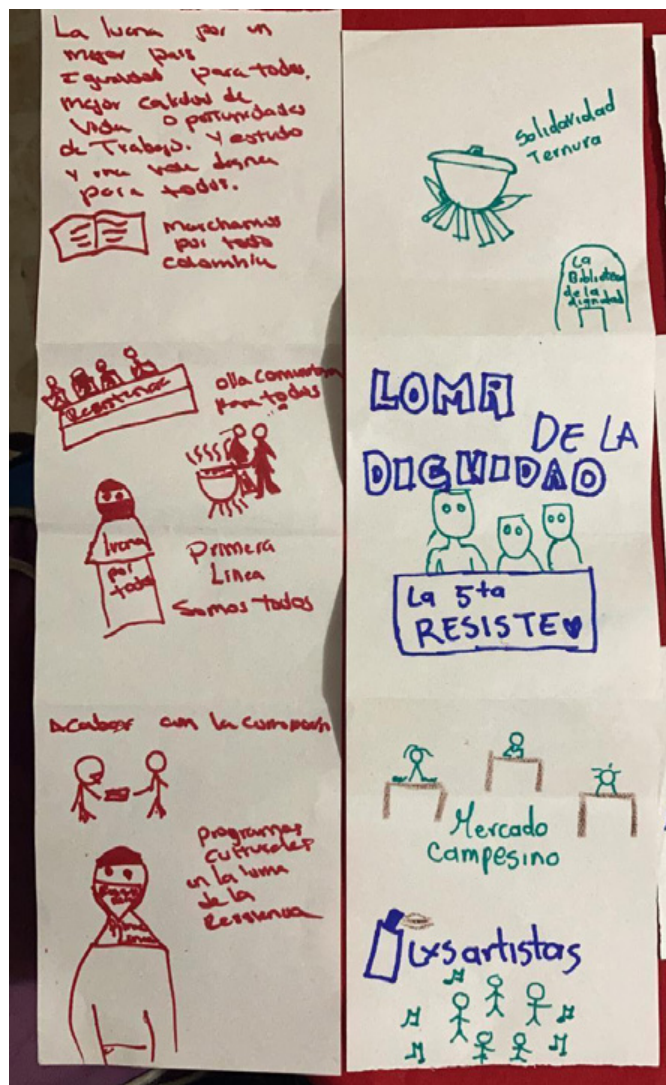 La lucha por un
mejor pais
Igualdad para todos,
mejor calidad de
vida oportunidades
de Trabajo. y estudio
y una vida digna
para todos.
Marchamos
por todo
Colombia
Resistencia
olla comunitaria
para todos
lucha
por
todos
Primera
Linea
Somos todos
Acabar con la
Programas
culturales
en la loma
de la
Solidaridad
Ternura
La
Biblioteca
de la
dignidad
LOMA
DE LA
DIGNIDAD
La 5ta
RESISTE
Mercado
Campesino
Lxs artistas